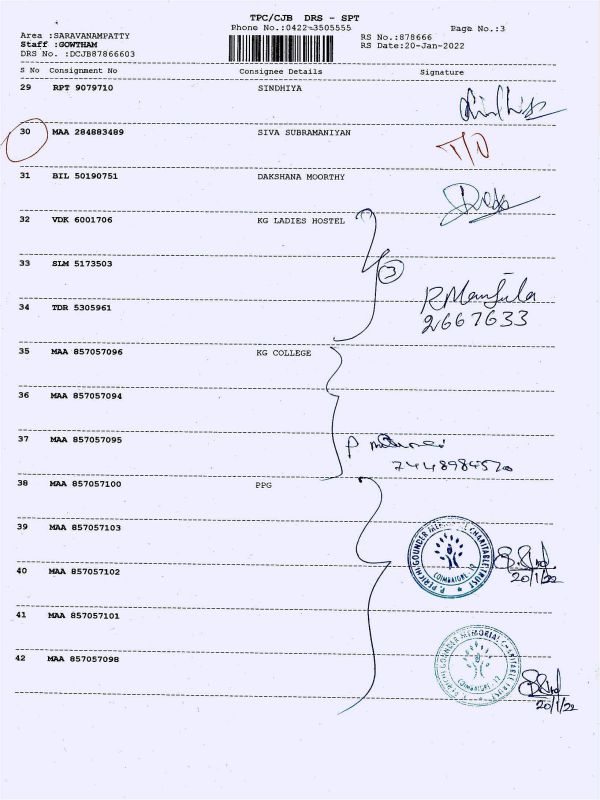 TPC/CJB DRS - SPT
Phone No.:0422-3505555 Page No.:3
Area :SARAVANAMPATTY RS No.:878666
Staff :GOWTHAM RS Date:20-Jan-2022
DRS No. :DCJB87866603
S No Consignment No Consignee Details Signature
29 RPT 9079710 SINDHIYA
30 MAA 284883489 SIVA SUBRAMANIYAN
31 BIL 50190751 DAKSHANA MOORTHY
32 VDK 6001706 KG LADIES HOSTEL
33 SLM 5173503
3
34 TDR 5305961
R Manjula
2667633
35 MAA 857057096 KG COLLEGE
36 MAA 857057094
37 MAA 857057095
38 MAA 857057100 PPG
39 MAA 857057103
P. PERICHI GOUNDER MEMORIAL CHARITABLE TRUST
COIMBATORE
20/1/22
40 MAA 857057102
41 MAA 857057101
42 MAA 857057098
P. PERICHI GOUNDER MEMORIAL CHARITABLE TRUST
COIMBATORE
20/1/22